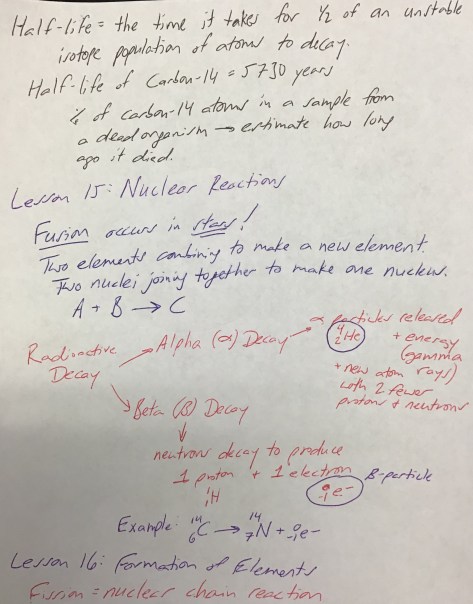 Half-life = the time it takes for 1/2 of an unstable
isotope population of atoms to decay.
Half-life of Carbon-14 = 5730 years
% of carbon-14 atoms in a sample from
a dead organism → estimate how long
ago it died.
Lesson 15: Nuclear Reactions
Fusion occurs in stars!
Two elements combining to make a new element.
Two nuclei joining together to make one nucleus.
A + B → C
Radioactive Decay
→ Alpha (α) Decay → α particles released
⁴₂He + energy
(gamma
rays)
+ new atom
with 2 fewer
protons + neutrons
→ Beta (β) Decay
↓
neutrons decay to produce
1 proton + 1 electron β-particle
¹₁H ⁰₋₁e-
Example: ¹⁴₆C → ¹⁴₇N + ⁰₋₁e-
Lesson 16: Formation of Elements
Fission = nuclear chain reaction